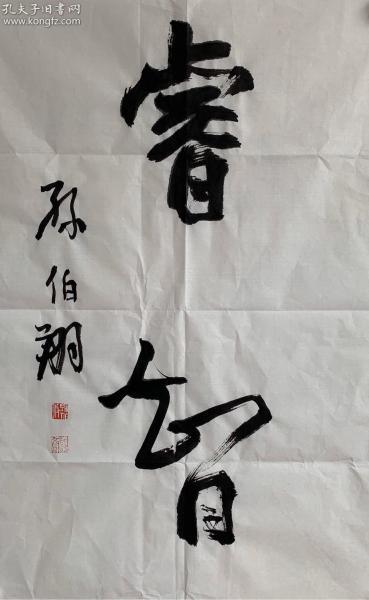 孔夫子旧书网
www.kongfz.com
睿智
孙伯翔